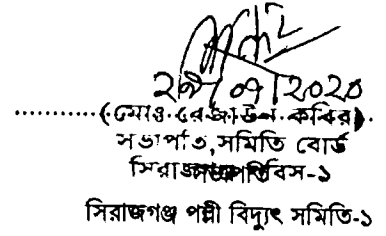 ২৯/০৭/২০২০
(মোঃ রেজাউল কবির)
সভাপতি, সমিতি বোর্ড
সিরাজগঞ্জ পবিস-১
সিরাজগঞ্জ পল্লী বিদ্যুৎ সমিতি-১